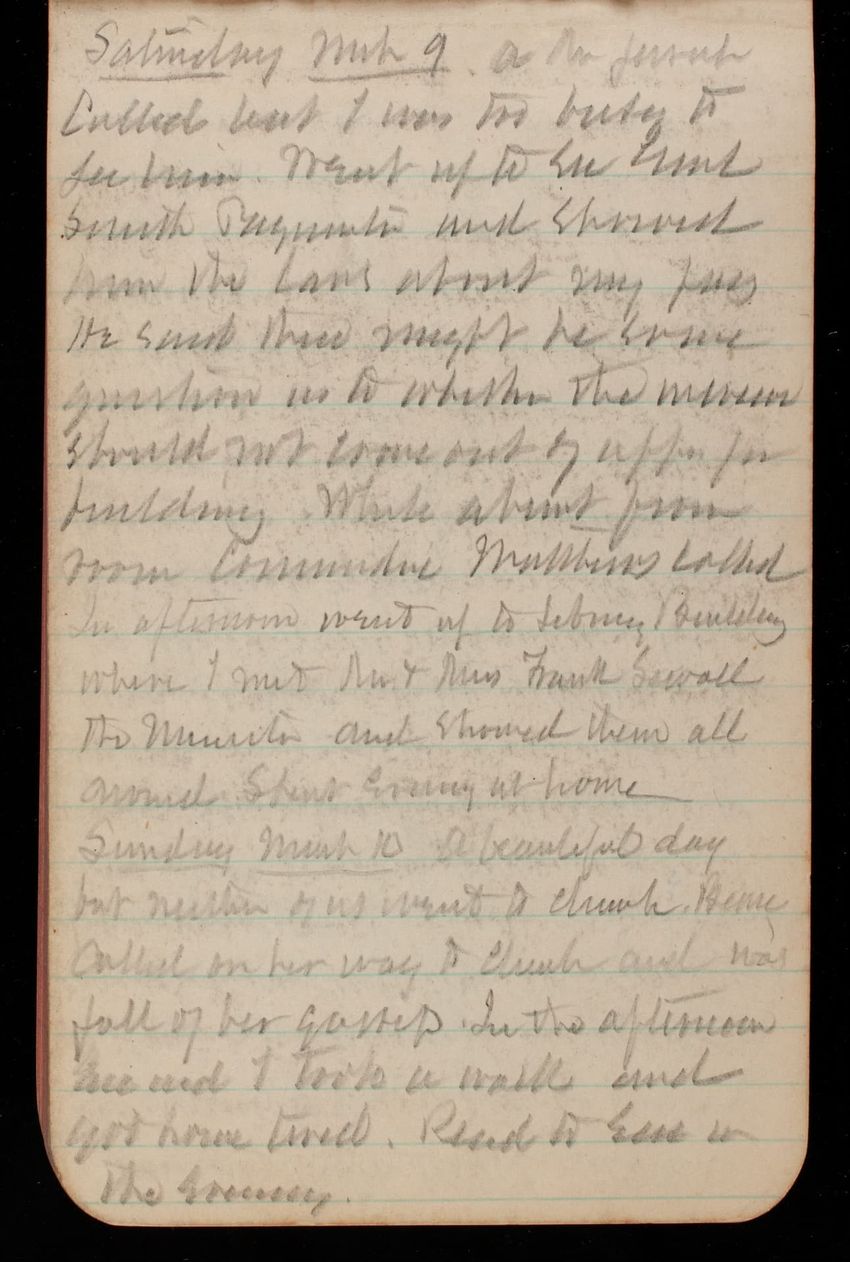 Saturday Mch 9 a Mr
Called but I was too busy to
See him. Went up to See
Smith and Showed
him the laws about my pay
He said there might be some
question as to whether the
should not come out of appn for
building. While absent from
room Commander Matthews called
In afternoon went up to Library Building
where I met Mr & Mrs Frank Sewall
the Minister and Showed them all
around Spent Evening at home
Sunday March 10 A beautiful day
but neither of us went to church.
Called on her way to Church and was
full of her gossip. In the afternoon
and I took a walk and
got home tired. Read to in
the Evening.